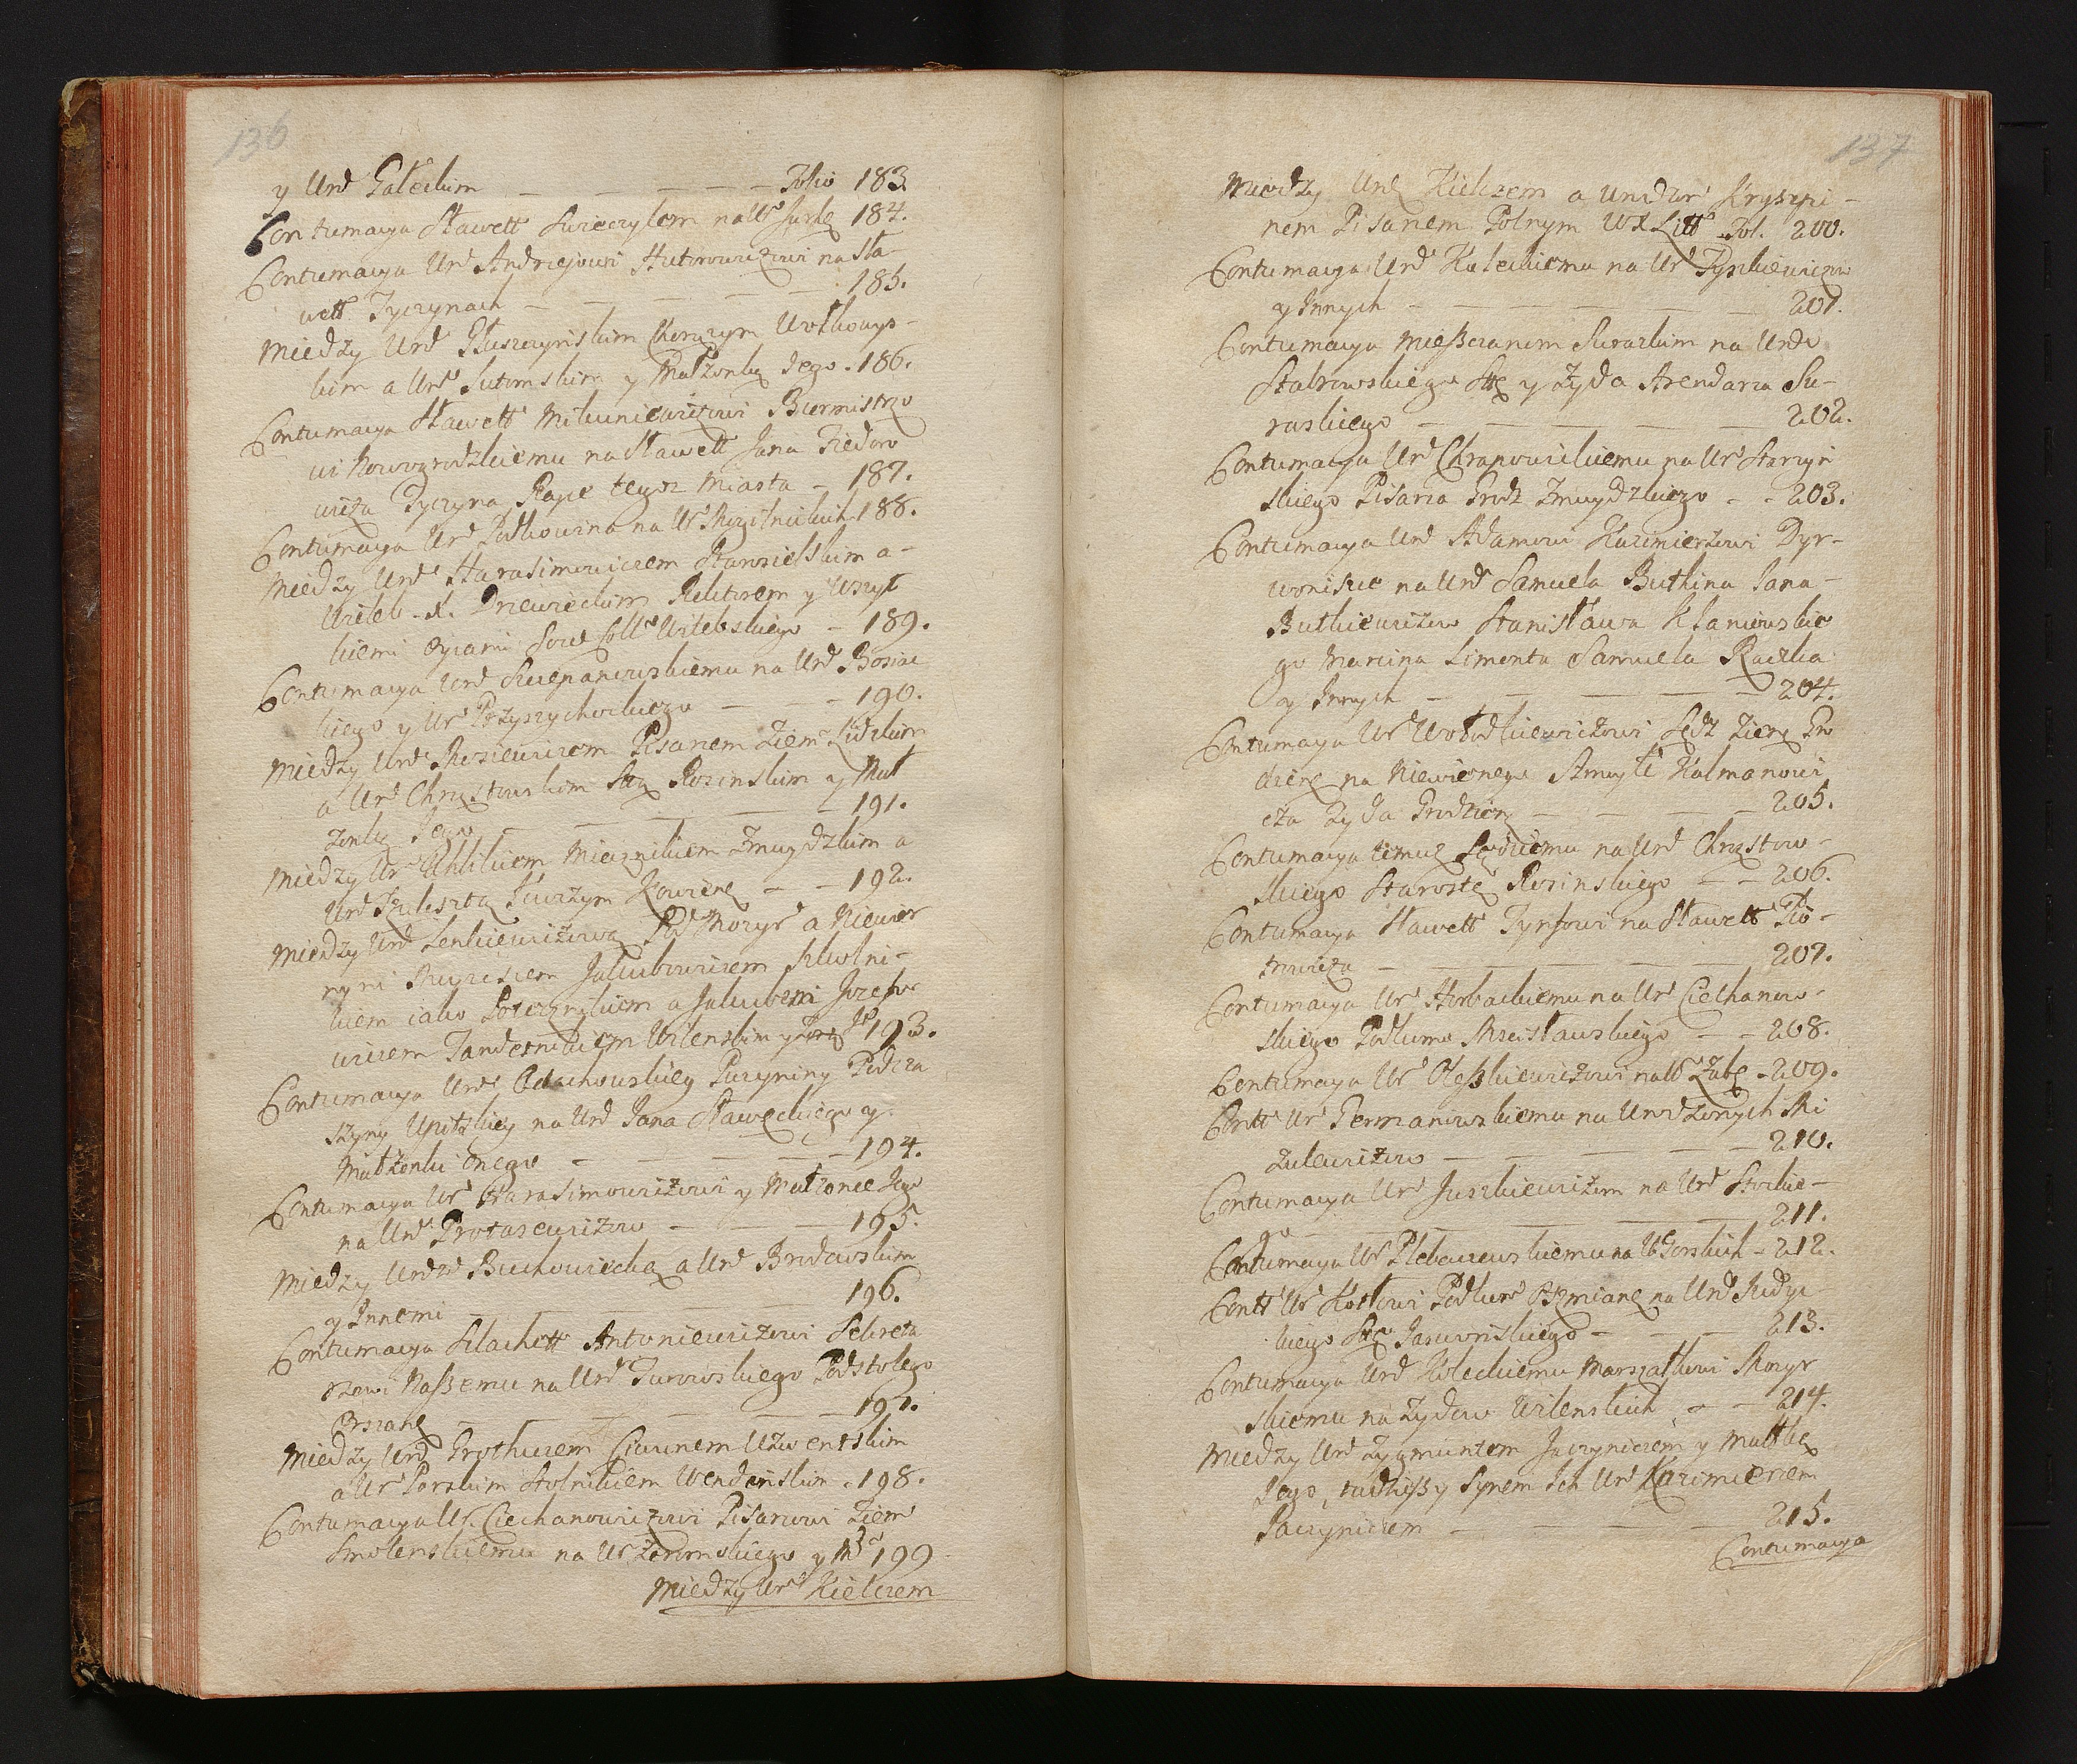 136
y Urd Gałeckim — — — — Folio 183
Contumacya Sławett Swieczylom na Ur 184.
Contumacya Urd Andrzejowi Hutorowiczowi na Sła-
wett Tyczynach — — — — 185.
Między Urd Głuszczynskim Chorązym Wołkowys-
kim a Urd Sutomskim y Małzonką Jego . 186.
Contumacya Sławett Mikuniewiczowi Burmistrzo
wi Nowogrodzkiemu na Sławett Jana Fiedoro
wicza Tyczyna Rayce tegoz Miasta — 187.
Contumacya Urd Podkowina na Ur 188.
Między Urd Harasimowiczem Starosielskim a-
Witeb. X. Drzewieckim Rektorem y Wszyt
kiemi Oycami Socie Colle Witebskiego — 189.
Contumacya Urd Szczepanowskiemu na Urd Bosiac
kiego y Ur Przysiychockiego — — — 190.
Między Urd Rosiewiczem Pisarzem Ziem Lidzkim
a Urd Chrząstowskim Sttą Rosinskim y Mał
zonką Jego — — — — 191.
Między Ur Uhlikiem Miecznikiem Zmuydzkim a
Urd Szuksztą Łowczym Kowienę — — 192.
Między Urd Senkiewiczową Pod Mozyr a Niewier
nymi Moyzeszem Jakubowiczem Szkolni-
kiem iako Poręcznikiem a Jakubem Jozefo-
wiczem Tandetnikiem Wilenskim y 193.
Contumacya Urd Odachowskiey Puzyniny Podcza
szyny Upitskiey na Urd Jana Sławęckiego y
Małzonki Onego — — — — 194.
Contumacya Ur Harasimowiczowi y Małzonce Jego
na Urd Protasewiczow — — — 195.
Między Urdz Buchowiecką a Urd Brodowskim
y Innemi — — — — 196.
Contumacya Szlachett Antoniewiczowi Sekreta
rzowi Naszemu na Urd Gurowskiego Podstolego
Orszanę — — — — 197.
Między Urd Grothuzem Ciwunem Użwentskim
a Ur Gorskim Stolnikiem Wendenskim . 198.
Contumacya Ur. Ciechanowiczowi Pisarzowi Ziem
Smolenskiemu na Ur Zoromskiego y 199
Między Urd Kielczem
137
Między Urd Kielczem a Urodzor Kryszpi-
nem Pisarzem Polnym WX Litt Fol. 200.
Contumacya Urd Kuleckiemu na Ur Tyszkiewiczow
y Innych — — — — 201.
Contumacya Mieszczanom Suraskim na Urdo
Stabrowskiego Sttę y Żyda Arendarza Su-
raskiego — — — — 202.
Contumacya Urd Chrapowickiemu na Ur Starzyń
skiego Pisarza Grodz Zmuydzkiego — — 203.
Contumacya Urd Adamowi Kazimierzowi Dyr-
woniszce na Urd Samuela Butkina Jana-
Butkiewiczow Stanisława Klaniowskie
go Marcina Simonta Samuela Raczka
y Innych — — — — 204.
Contumacya Ur Wołodkiewiczowi Sędz Ziem Gro
dzienę na Niewiernego Szmuyłę Kalmanowi
cza Żyda Grodzienę — — — — 205.
Contumacya temuz Sędziemu na Urd Chrząstow-
skiego Starostę Rosinskiego — — 206.
Contumacya Sławett Tynfowi na Sławett Pio-
trowicza — — — — 207.
Contumacya Ur Horbackiemu na Ur Ciechanow-
skiego Podkomo Mscisławskiego — — 208.
Contumacya Ur Oleszkiewiczowi na Ur Zabę — 209.
Contt Ur Germanowskiemu na Urodzonych Mi
zulewiczow — — — — 210.
Contumacya Urd Juszkiewiczom na Urd Storkie-
go — — — — 211.
Contumacya Ur Plebaczewskiemu na Ur Gorskich — 212.
Contt Ur Kotłowi Podkom Oszmianę na Urd Rudzic-
kiego Sttę Jaswonskiego — — — 213.
Contumacya Urd Koleckiemu Marszałkowi Mozyr
skiemu na Zydow Wilenskich — — 214.
Między Urd Zygmuntem Jaczyniczem y Małtką
Jego, tudziesz y Synem Ich Urd Kazimierzem
Jaczyniczem — — — — 215.
Contumacya